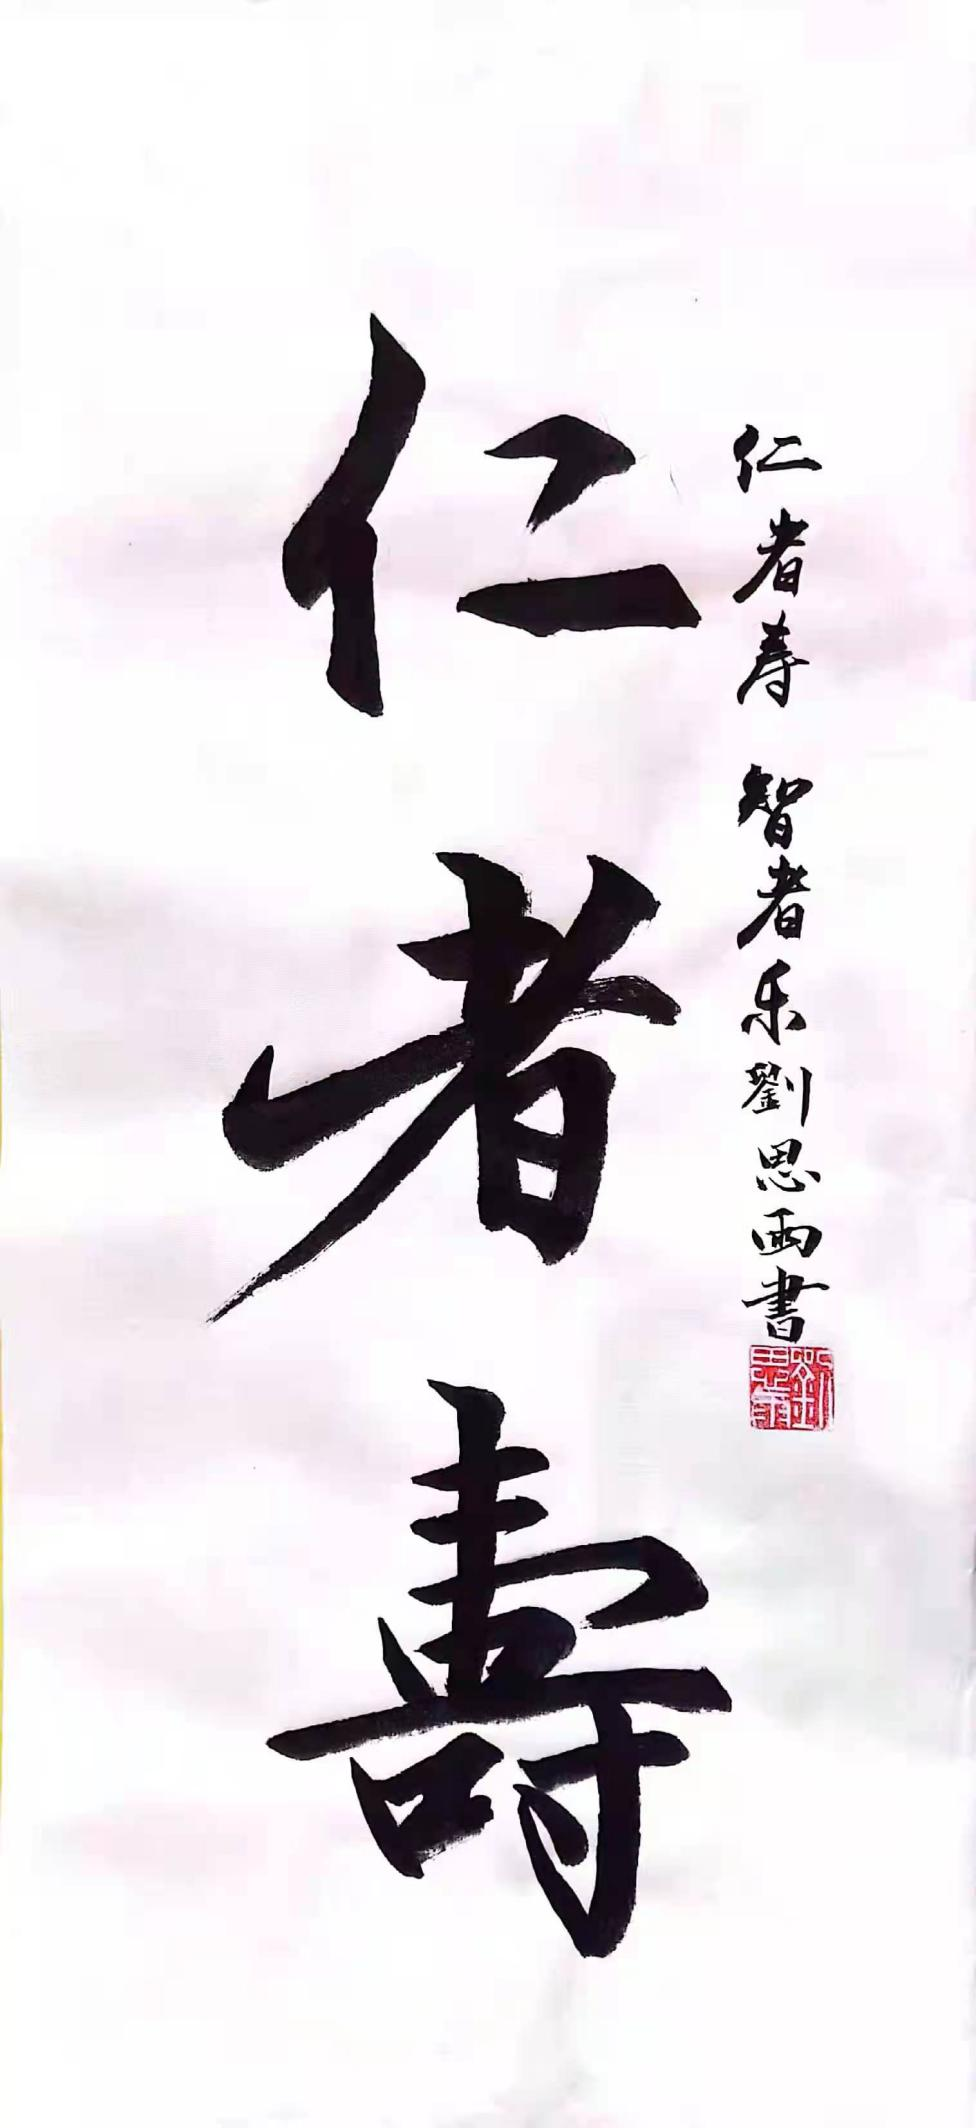 仁者壽
仁者寿 智者乐 劉思雨書
劉思雨